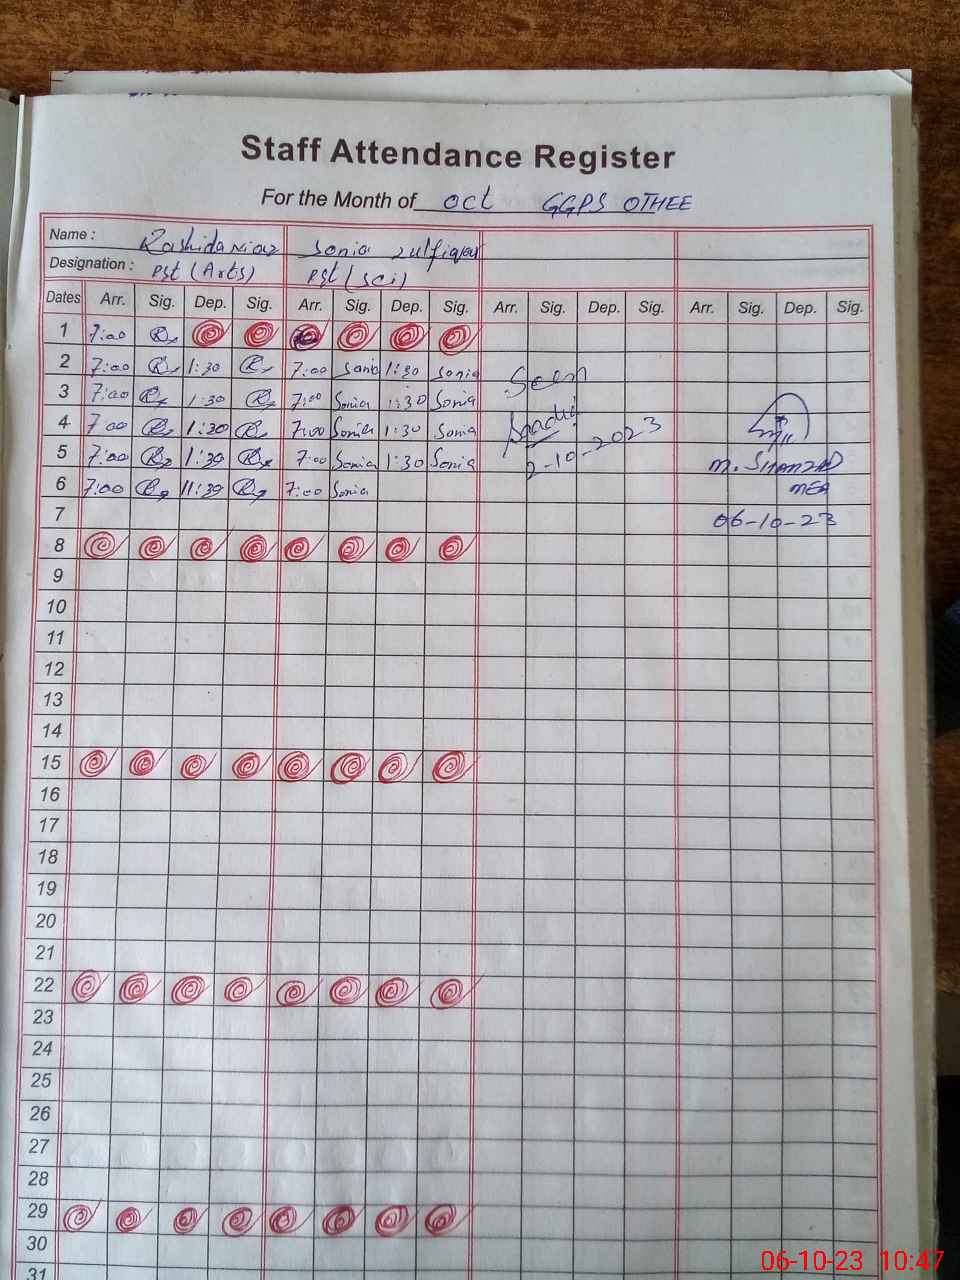 Staff Attendance Register
For the Month of oct GGPS OTHEE
Name : Rashida Niaz Sonia zulfiqar
Designation : PST (Arts) PST (Sci)
Dates Arr. Sig. Dep. Sig. Arr. Sig. Dep. Sig. Arr. Sig. Dep. Sig. Arr. Sig. Dep. Sig.
1 7:00
2 7:00 1:30 7:00 Sonia 1:30 Sonia
3 7:00 1:30 7:00 Sonia 1:30 Sonia
4 7:00 1:30 7:00 Sonia 1:30 Sonia
5 7:00 1:30 7:00 Sonia 1:30 Sonia
6 7:00 11:30 7:00 Sonia
Seen
2-10-2023
M. SHAHZAD
MEA
06-10-23
7
8
9
10
11
12
13
14
15
16
17
18
19
20
21
22
23
24
25
26
27
28
29
30
31
06-10-23 10:47